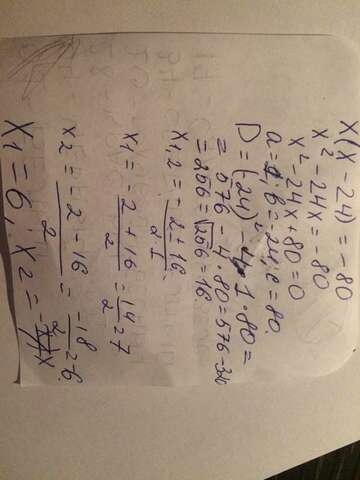 x(x - 24) = -80
x² - 24x = -80
x² - 24x + 80 = 0
a = 1; b = -24; c = 80.
D = (24)² - 4·1·80 =
= 576 - 4·80 = 576 - 320
= 256 = √256 = 16.
x1,2 = -2 + 16 / 2·1
x1 = -2 + 16 / 2 = 14 / 2 = 7
x2 = -2 - 16 / 2 = -18 / 2 = 6.
x1 = 6; x2 =